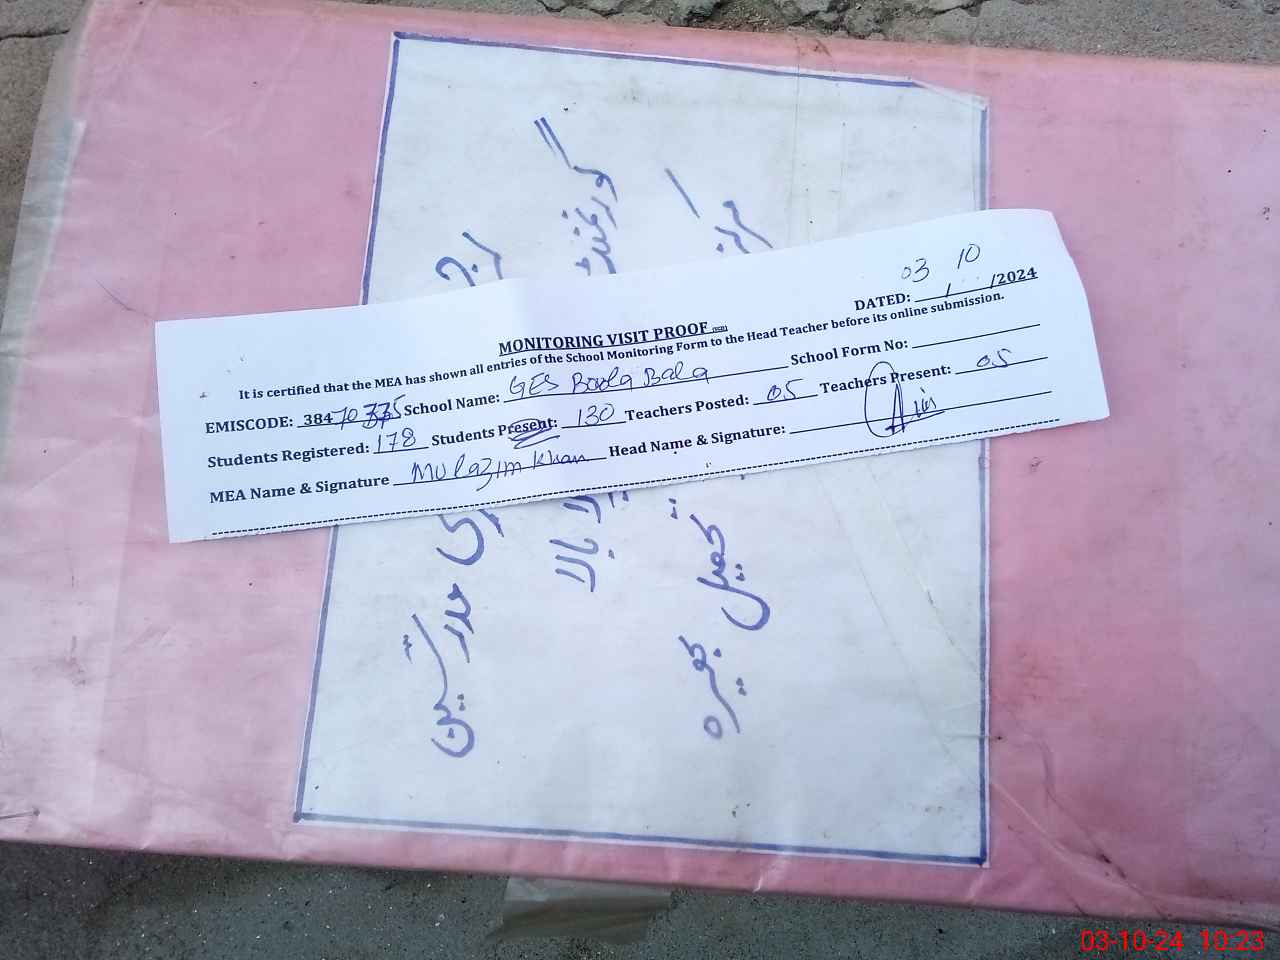 03 10
DATED: __/__/2024
MONITORING VISIT PROOF
It is certified that the MEA has shown all entries of the School Monitoring Form to the Head Teacher before its online submission.
EMISCODE: 384 70 335 School Name: GES Boola Bala School Form No:
Students Registered: 178 Students Present: 130 Teachers Posted: 05 Teachers Present: 05
MEA Name & Signature Mulazim Khan Head Name & Signature:
ی مدرسین
گورنمنٹ
لا بالا
تحصیل بحیرہ
03-10-24 10:23